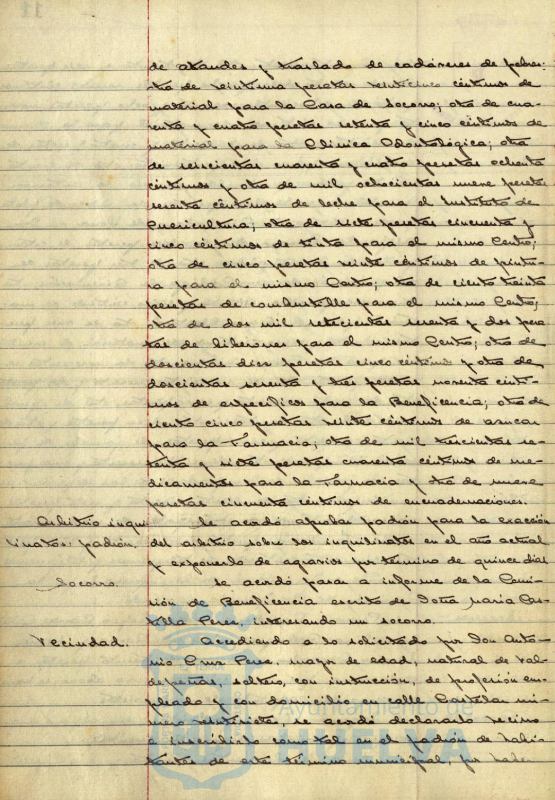 de ataudes y traslado de cadáveres de pobres:
otra de veintiuna pesetas veinticinco céntimos de
material para la Casa de Socorro; otra de cua-
renta y cuatro pesetas setenta y cinco céntimos de
material para la Clinica Odontológica; otra
de seiscientas cuarenta y cuatro pesetas ochenta
céntimos y otra de mil ochocientas nueve pesetas
sesenta céntimos de leche para el Instituto de
Puericultura; otra de siete pesetas cincuenta y
cinco céntimos de tinta para el mismo Centro;
otra de cinco pesetas veinte céntimos de pintu-
ra para el mismo Centro; otra de ciento treinta
pesetas de combustible para el mismo Centro;
otra de dos mil setecientas sesenta y dos pese-
tas de biberones para el mismo Centro; otra de
doscientas diez pesetas cinco céntimos y otra de
doscientas sesenta y tres pesetas noventa cénti-
mos de específicos para la Beneficencia; otra de
ciento cinco pesetas veinte céntimos de azucar
para la Farmacia; otra de mil trescientas se-
tenta y siete pesetas cuarenta céntimos de me-
dicamentos para la Farmacia y otra de nueve
pesetas cincuenta céntimos de encuadernaciones.
Arbitrio inqui- Se acordó aprobar padrón para la exacción
linatos: padrón. del arbitrio sobre los inquilinatos en el año actual
y exponerlo de agravios por término de quince días
Socorro. Se acordó pasar a informe de la Comi-
sión de Beneficencia escrito de Doña María Cas-
tilla Perez, interesando un socorro.
Vecindad. Accediendo a lo solicitado por Don Anto-
nio Cruz Perea, mayor de edad, natural de Val-
depeñas, soltero, con instrucción, de profesión em-
pleado y con domicilio en calle Castelar nú-
mero veintisiete, se acordó declararlo vecino
e inscribirlo como tal en el padrón de habi-
tantes de este término municipal, por haber
Ayuntamiento de
HUELVA